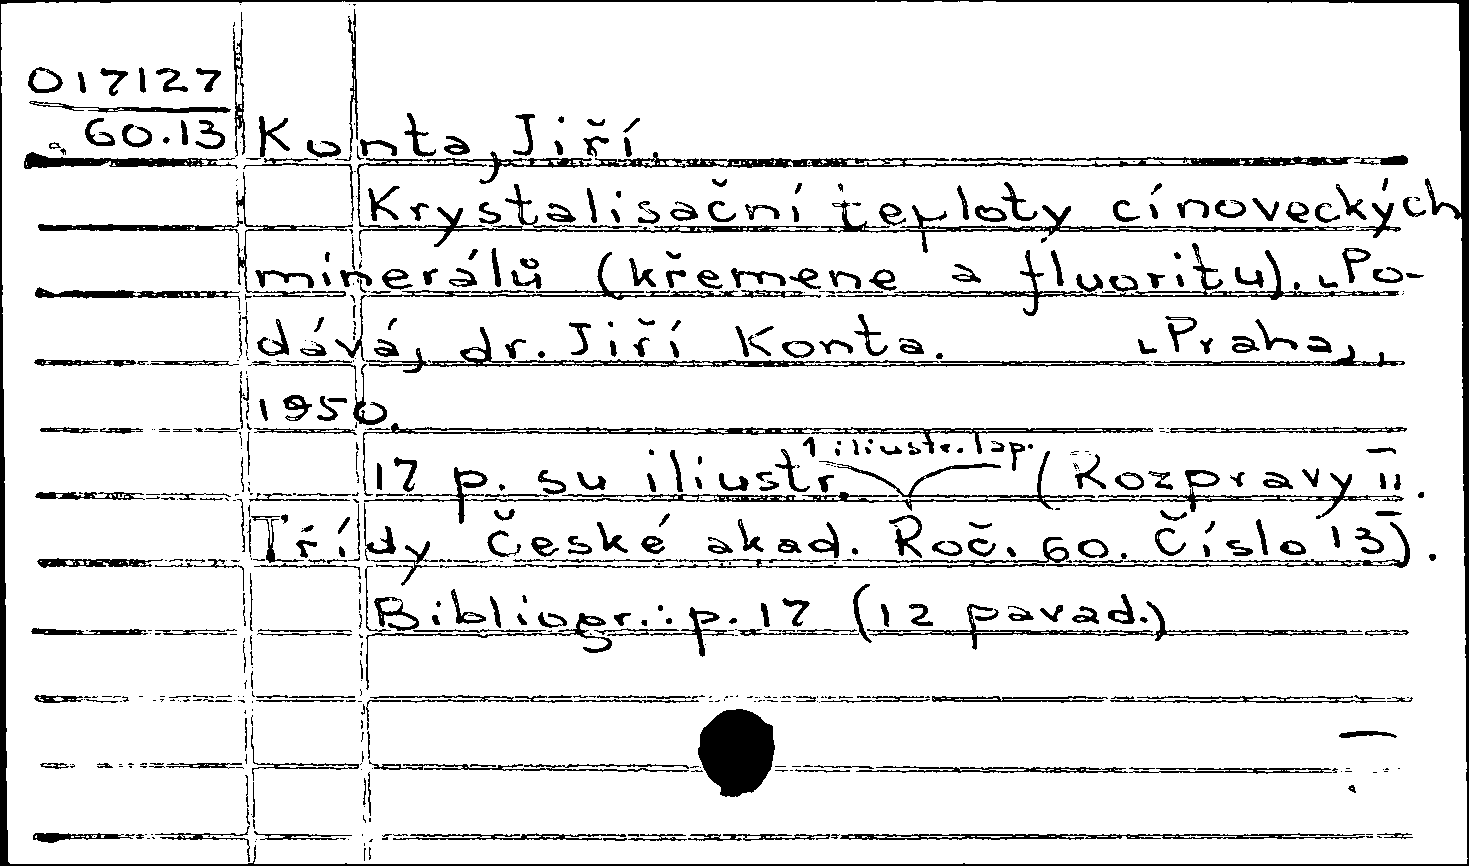 017127
60.13 Konta, Jiří.
Krystalisační teploty cínoveckých
minerálů (křemene a fluoritu). [Po-
dává] dr. Jiří Konta. [Praha],
1950.
17 p. su iliustr. 1 iliustr. lap. (Rozpravy II
Třídy České akad. Roč. 60. Číslo 13).
Bibliogr.: p. 17 (12 pavad.)